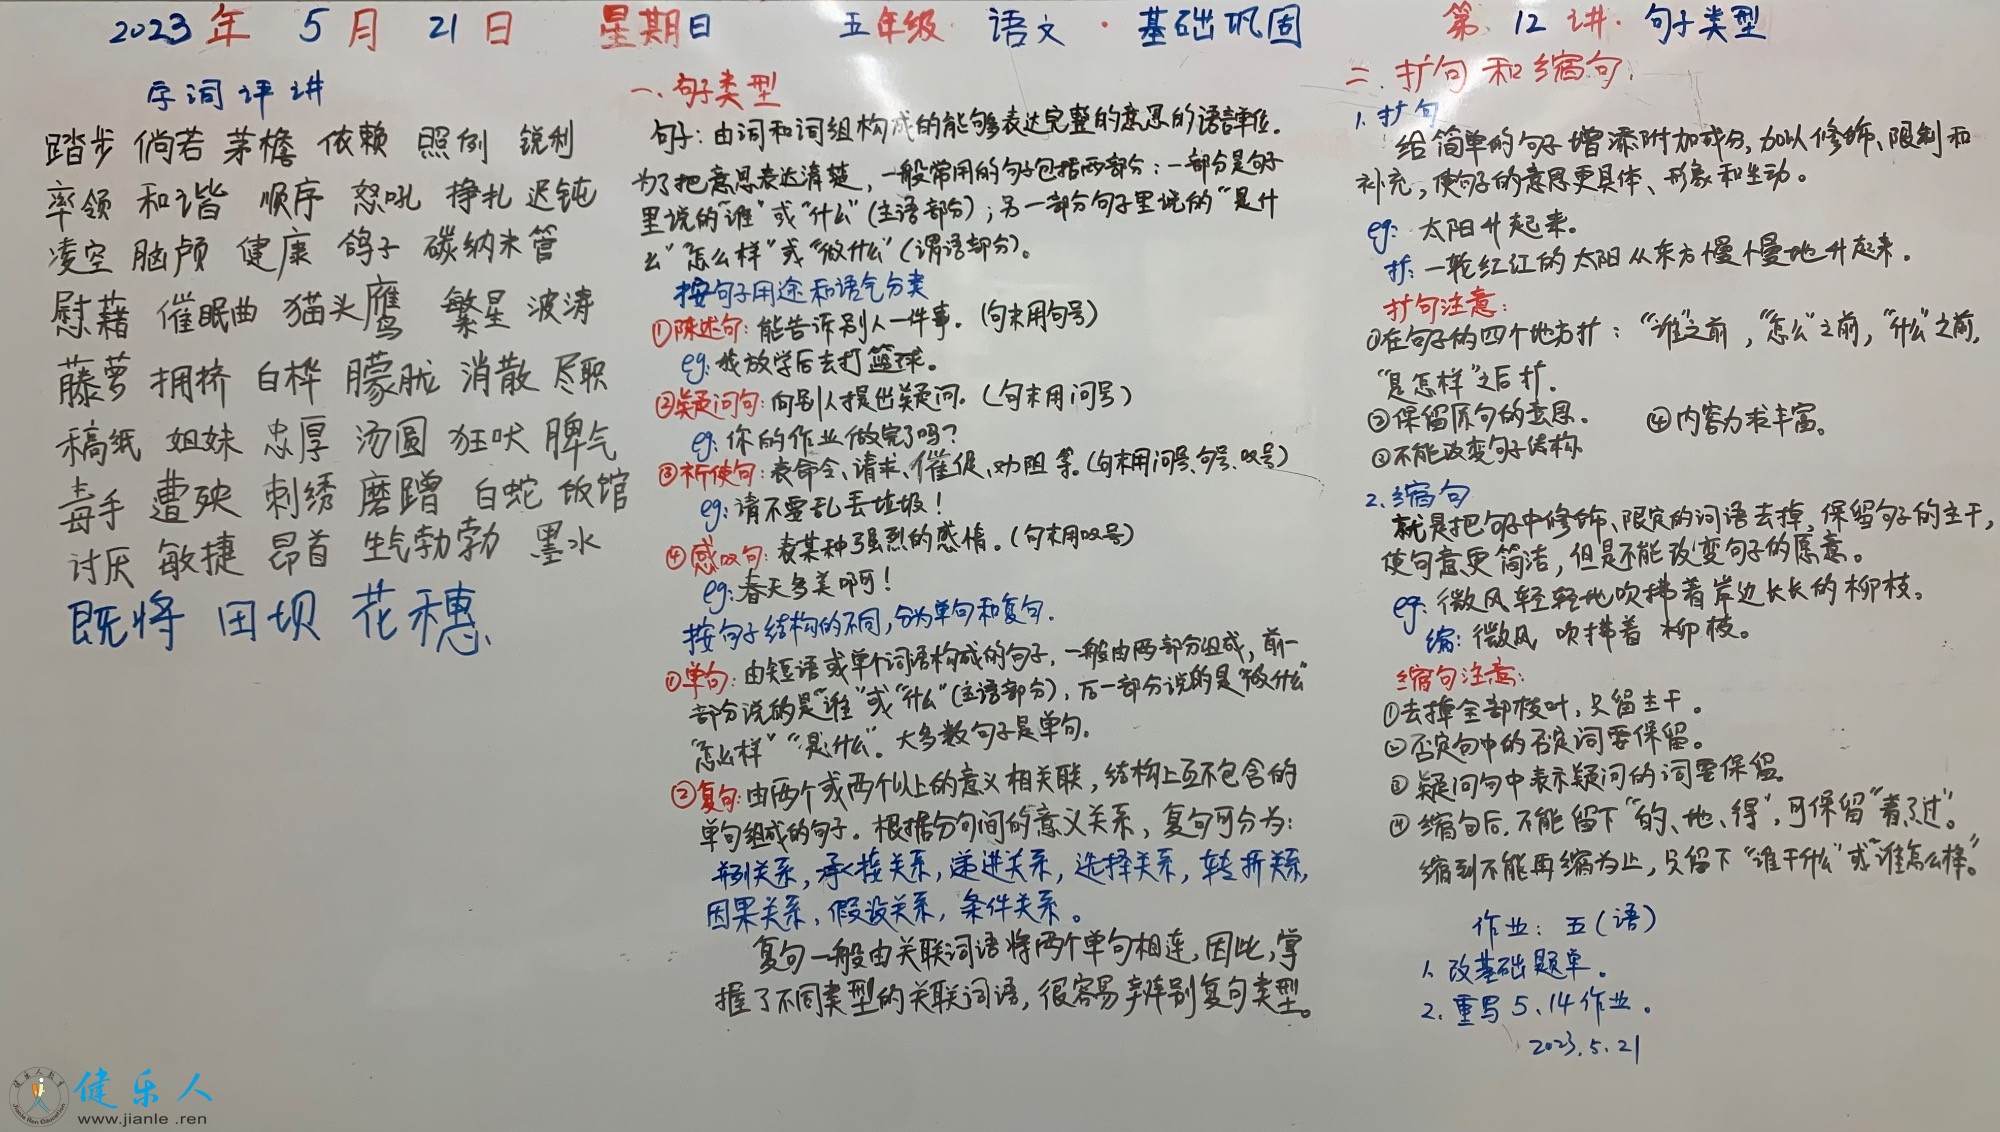 2023年 5月 21日 星期日 五年级 语文·基础巩固 第12讲·句子类型
字词评讲
踏步 倘若 茅檐 依赖 照例 锐利
率领 和谐 顺序 怒吼 挣扎 迟钝
凌空 脑颅 健康 鸽子 碳纳米管
慰藉 催眠曲 猫头鹰 繁星 波涛
藤萝 拥挤 白桦 朦胧 消散 尽职
稿纸 姐妹 忠厚 汤圆 狂吠 脾气
毒手 遭殃 刺绣 磨蹭 白蛇 饭馆
讨厌 敏捷 昂首 生气勃勃 墨水
既将 田坝 花穗
一.句子类型
句子:由词和词组构成的能够表达完整的意思的语言单位。
为了把意思表达清楚,一般常用的句子包括两部分:一部分是句子
里说的“谁”或“什么”(主语部分);另一部分句子里说的“是什
么”“怎么样”或“做什么”(谓语部分)。
按句子用途和语气分类
①陈述句:能告诉别人一件事。(句末用句号)
eg:我放学后去打篮球。
②疑问句:向别人提出疑问。(句末用问号)
eg:你的作业做完了吗?
③祈使句:表命令、请求、催促、劝阻等。(句末用问号、句号、叹号)
eg:请不要乱丢垃圾!
④感叹句:表某种强烈的感情。(句末用叹号)
eg:春天多美啊!
按句子结构的不同,分为单句和复句.
①单句:由短语或单个词语构成的句子,一般由两部分组成,前一
部分说的是“谁”或“什么”(主语部分),后一部分说的是“做什么”
“怎么样”“是什么”。大多数句子是单句。
②复句:由两个或两个以上的意义相关联,结构上互不包含的
单句组成的句子。根据分句间的意义关系,复句可分为:
并列关系,承接关系,递进关系,选择关系,转折关系,
因果关系,假设关系,条件关系。
复句一般由关联词语将两个单句相连,因此,掌
握了不同类型的关联词语,很容易辨别复句类型。
二.扩句和缩句.
1.扩句
给简单的句子增添附加成分,加以修饰、限制和
补充,使句子的意思更具体、形象和生动。
eg:太阳升起来。
扩:一轮红红的太阳从东方慢慢地升起来。
扩句注意:
①在句子的四个地方扩:“谁”之前,“怎么”之前,“什么”之前,
“是怎样”之后扩.
②保留原句的意思。 ④内容力求丰富。
③不能改变句子结构.
2.缩句
就是把句子中修饰、限定的词语去掉,保留句子的主干,
使句意更简洁,但是不能改变句子的原意。
eg:微风轻轻地吹拂着岸边长长的柳枝。
缩:微风 吹拂着 柳枝。
缩句注意:
①去掉全部枝叶,只留主干。
②否定句中的否定词要保留。
③疑问句中表示疑问的词要保留。
④缩句后,不能留下“的、地、得”,可保留“着了过”。
缩到不能再缩为止,只留下“谁干什么”或“谁怎么样”。
作业:五(语)
1.改基础题单。
2.重写5.14作业。
2023.5.21
健乐人
www.jianle.ren